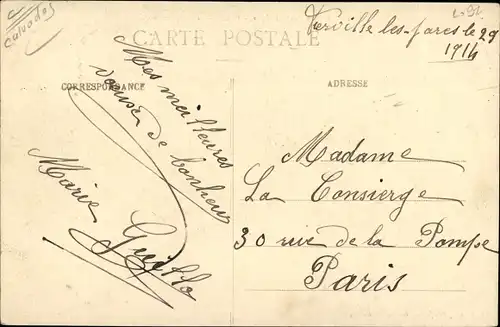 Calvados
CARTE POSTALE
les-pares le 29
1914
CORRESPONDANCE
ADRESSE
Mes meilleures
de bonheur
Marie
Madame
La Consierge
30 rue de la Pompe
Paris